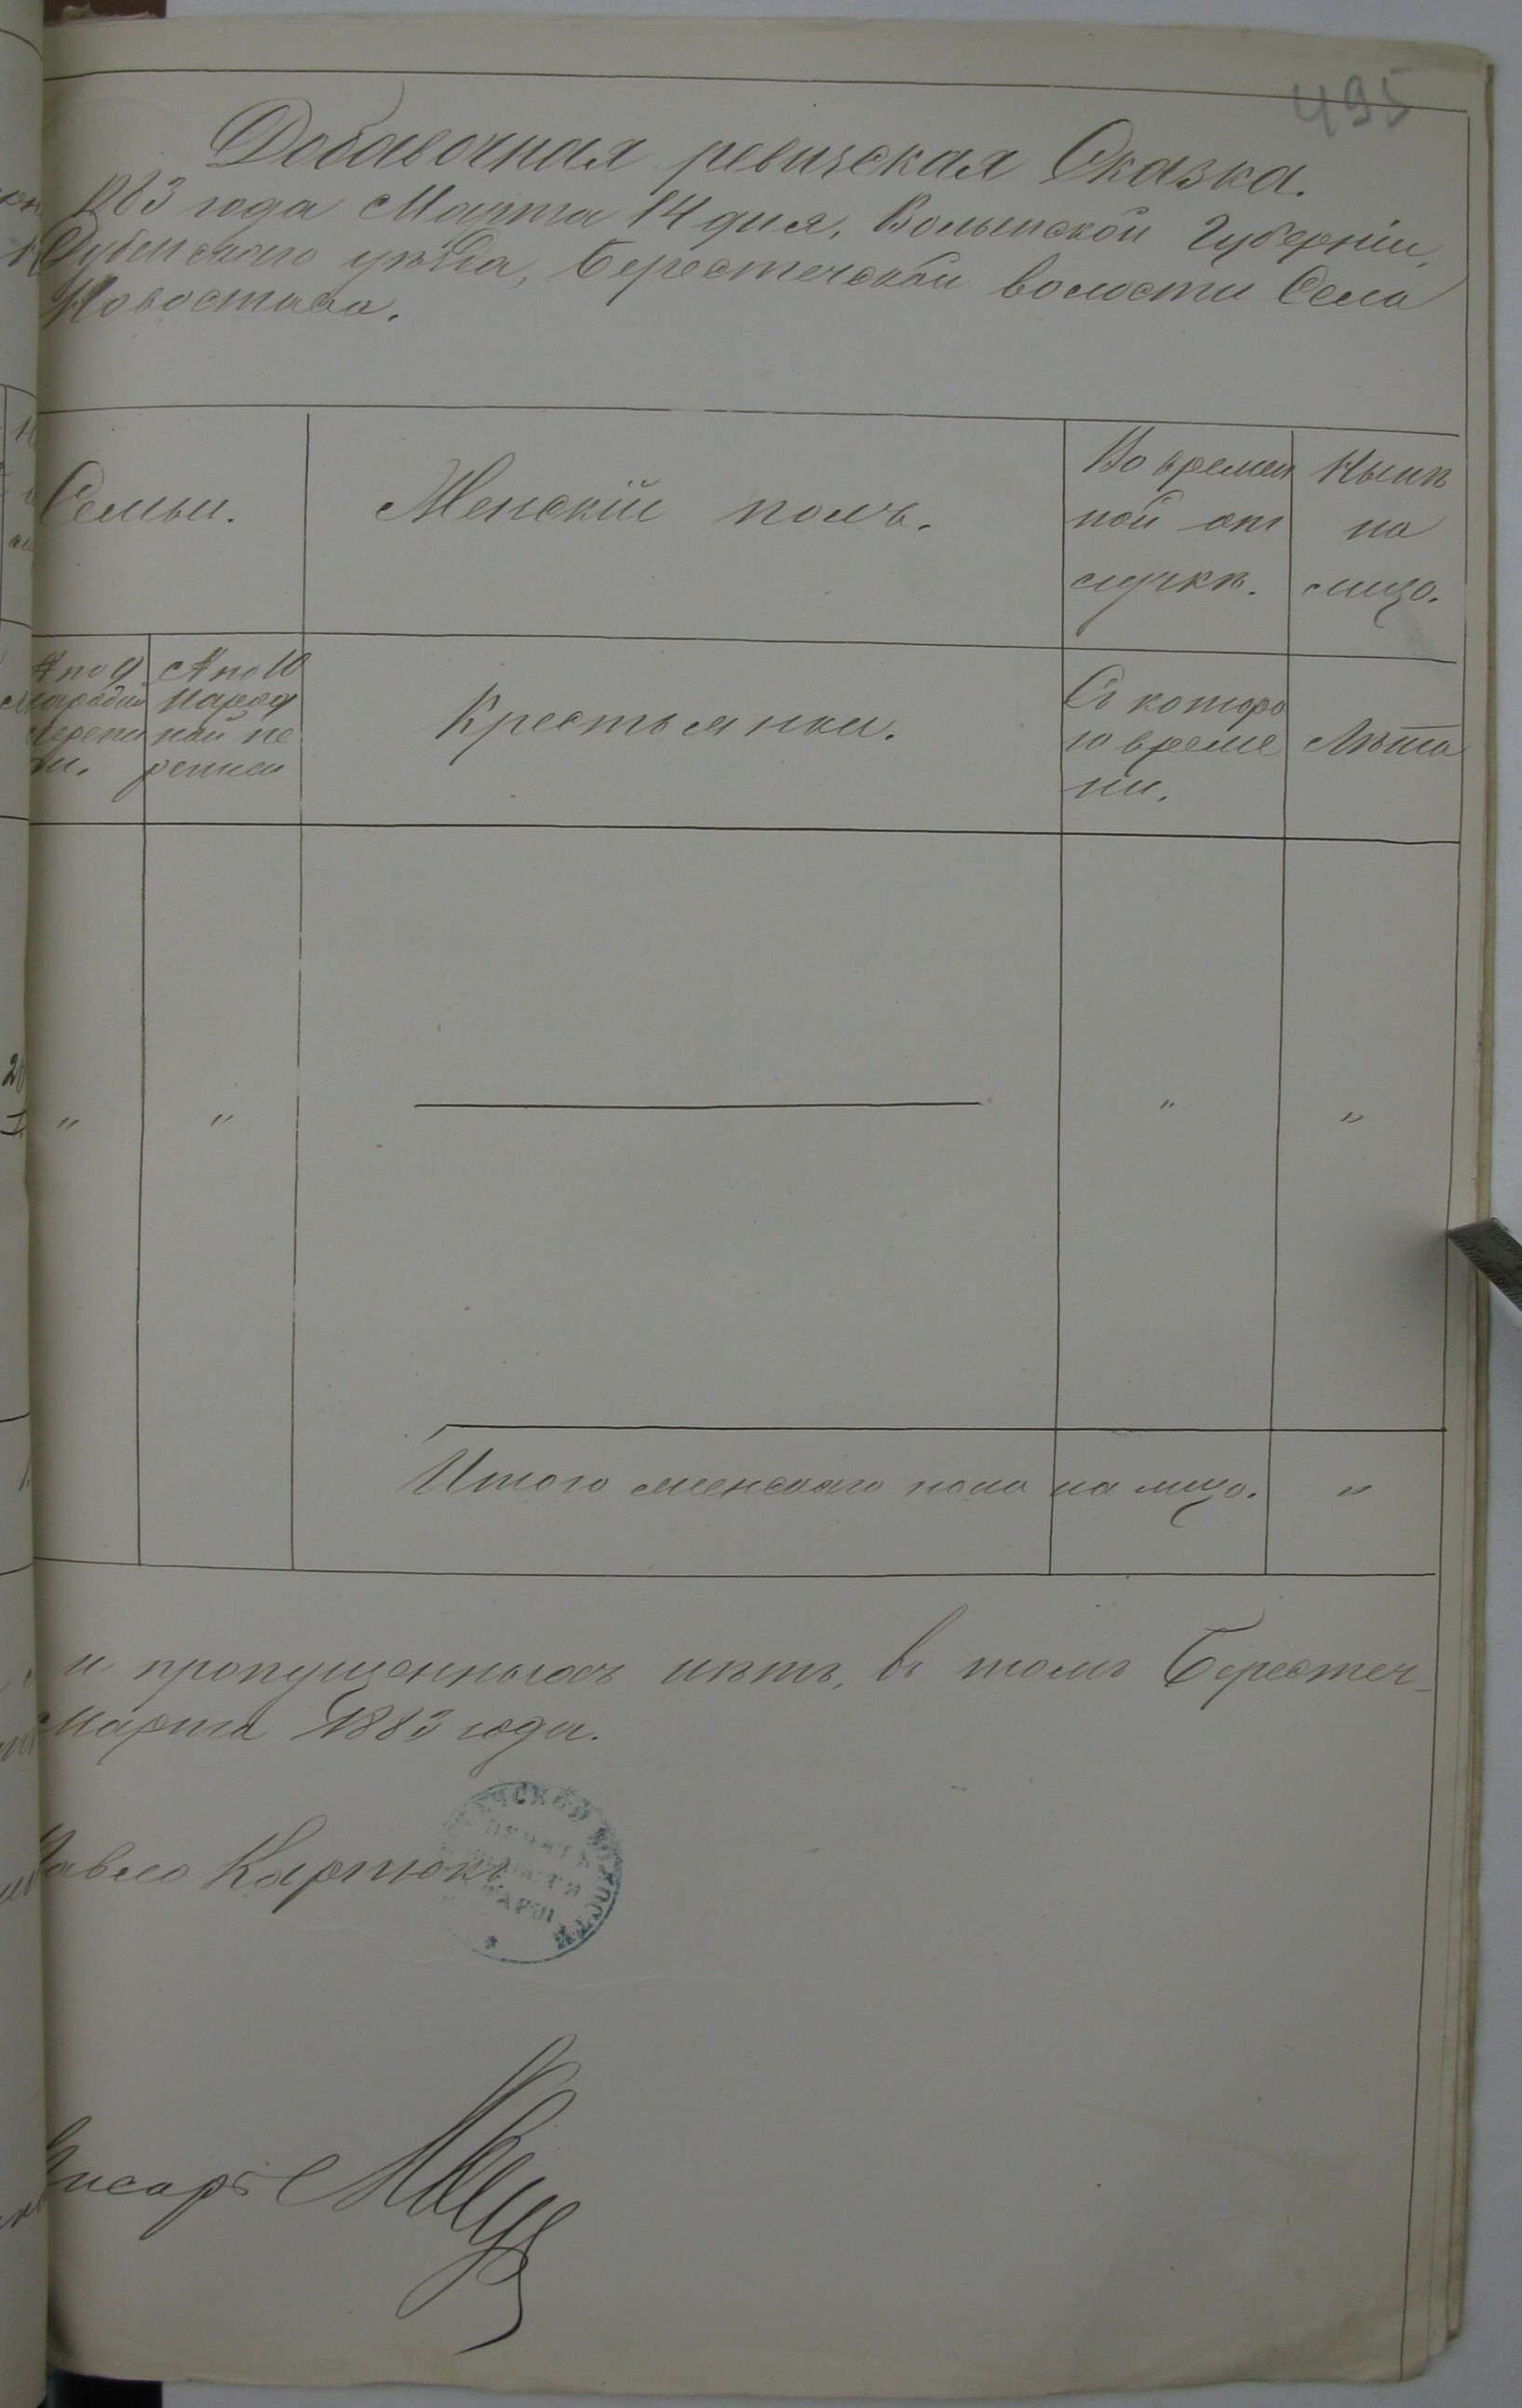 495
Добавочная ревизская Сказка.
1883 года Марта 14 дня, Волынской Губерніи,
Дубенскаго уѣзда, Берестечской волости Села
Новостава.
Семьи.
Женскій полъ.
Во времен
ной от
лучкѣ.
Нынѣ
на
лицо.
№ по 9
народной
перепи
си.
№ по 10
народ
ной пе
реписи
Крестьянки.
Съ которо
го време
ни.
Лѣта
" " " "
Итого женскаго пола на лицо. "
и пропущенныхъ нѣтъ, въ томъ Берестеч-
Марта 1883 года.
Павло Картюкъ
Писарь